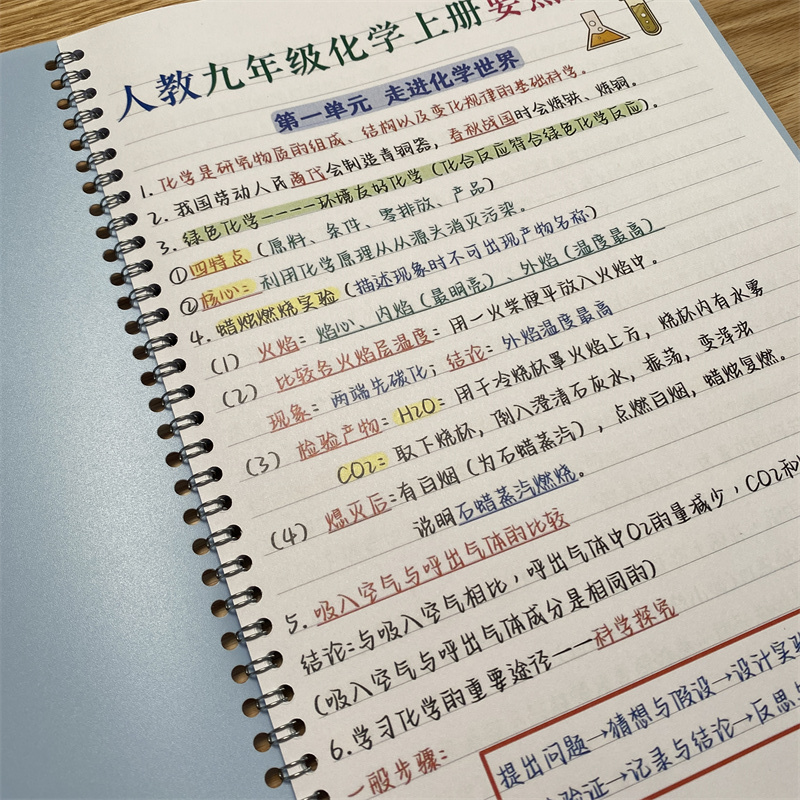 人教九年级化学上册要点
第一单元 走进化学世界
1. 化学是研究物质的组成、结构以及变化规律的基础科学。
2. 我国劳动人民商代会制造青铜器，春秋战国时会炼铁、炼钢。
3. 绿色化学-----环境友好化学（化合反应符合绿色化学反应）。
①四特点（原料、条件、零排放、产品）
②核心：利用化学原理从从源头消灭污染。
4. 蜡烛燃烧实验（描述现象时不可出现产物名称）
（1）火焰：焰心、内焰（最明亮）、外焰（温度最高）
（2）比较各火焰层温度：用一火柴梗平放入火焰中。
现象：两端先碳化；结论：外焰温度最高
（3）检验产物：H2O：用干冷烧杯罩火焰上方，烧杯内有水雾
CO2：取下烧杯，倒入澄清石灰水，振荡，变浑浊
（4）熄灭后：有白烟（为石蜡蒸汽），点燃白烟，蜡烛复燃。
说明石蜡蒸汽燃烧。
5. 吸入空气与呼出气体的比较
结论：与吸入空气相比，呼出气体中O2的量减少，CO2和
（吸入空气与呼出气体成分是相同的）
6. 学习化学的重要途径——科学探究
一般步骤：
提出问题→猜想与假设→设计实验
验证→记录与结论→反思与